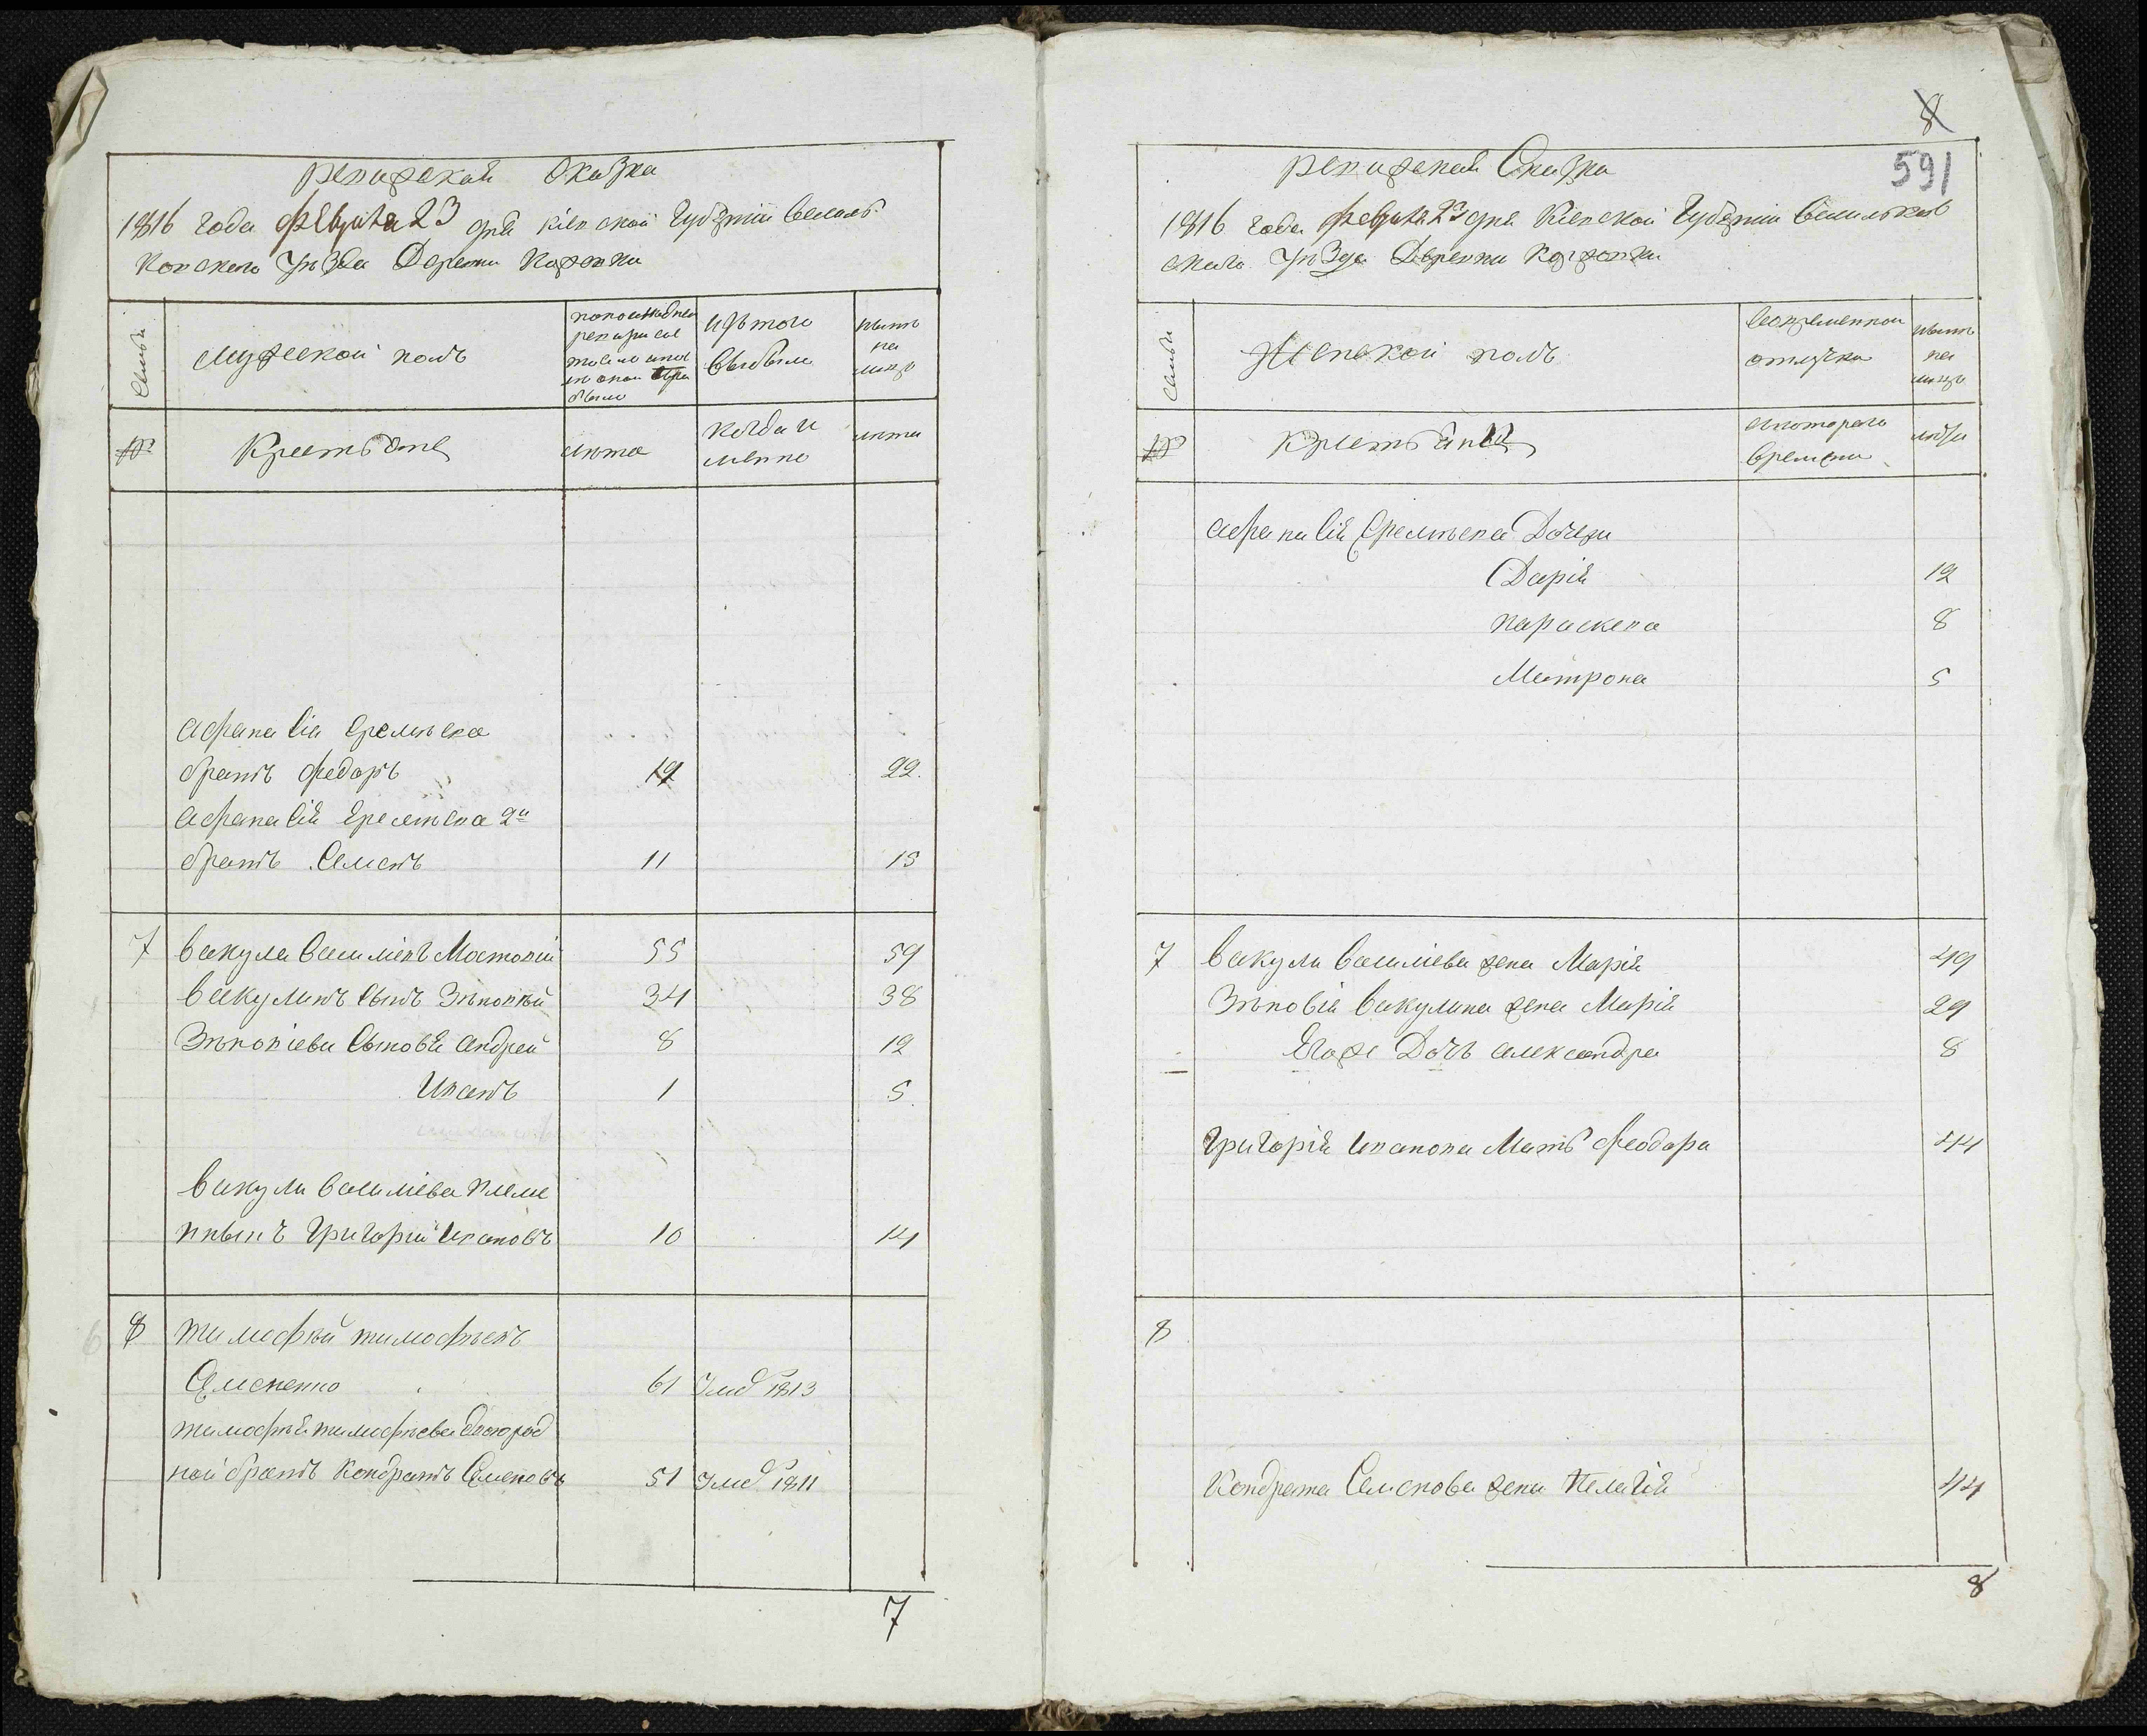 Ревизская Сказка
1816 года Февраля 23 дня Кіевской Губерніи Василь
ковского Уезда Деревни
Семьи
Мужеской полъ
по последней
ревизіи со
стояло и по
сле оной при
было
изъ того
выбыло
ныне
на
лицо
№
Крестьяне
лета
когда и
менно
лета
Афанасія Еремеева
братъ Федоръ 19 22
Афанасія Еремеева 2й
братъ Семенъ 11 15
7 Вакула Василіевъ Мостовій 55 59
Вакулинъ Сынъ Зѣновій 34 38
Зѣновіеви Сыновя Андрей 8 12
Иванъ 1 5
Вакули Василіева племе
нныкъ Григорій Ивановъ 10 14
8 Тимофей Тимофеевъ
Семененко 61 Умер 1813
Тимофея Тимофеева двоюрод
ной братъ Кондратъ Семеновъ 51 Умер 1811
7
8
591
Ревизская Сказка
1816 года Февраля 23 дня Кіевской Губерніи Васильков
скаго Уезда Деревни
Семьи
Женской полъ
Во временной
отлучке
ныне
на
лицо
№
Крестьянки
с котораго
времени
лета
Афанасія Еремеева Дочери
Дарія 12
Параскева 8
Матрона 5
7 Вакули Василіева жена Марія 49
Зѣновія Вакулина жена Марія 29
Егожъ Дочъ Александра 8
Григорія Иванова Мать Феодора 44
8
Кондрата Семенова жена Пелагія 44
8